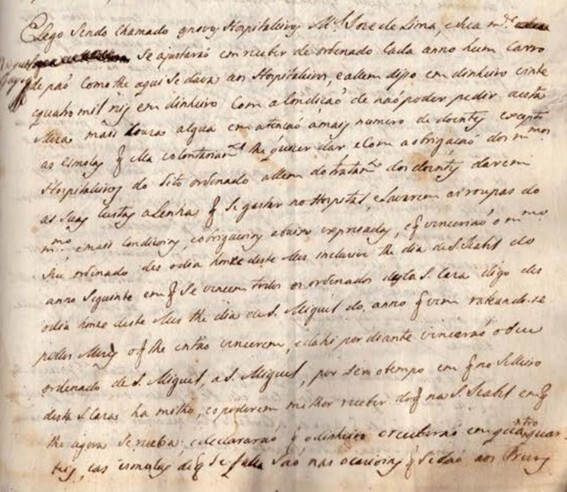 E logo Sendo Chamado o novo Hospitaleiro M.el Jose de Lima, e Sua m.er
Se ajustaraõ em receber de ordenado Cada anno hum Carro
de paõ como the aqui se dava aos Hospitaleiros, e allem disso em dinheiro vinte
e quatro mil reis em dinheiro Com a Condiçaõ de naõ poder pedir a esta
Mza mais Couza algua em atençaõ a mais numero de doentes excepto
as esmolas q Ella voluntariam.te lhe quizer dar e Com a obrigaçaõ dos m.mos
Hospitaleiros do dito ordenado allem do tratam.to dos doentes darem
as Suas Custas a Lenha q Se gastar no Hospital, e Lavarem as roupas do
m.mo e mais Condiçoins e obrigaçoins asima expresadas, e q venceraõ o m.mo
Seu ordenado des o dia honze deste Mes inclusive the dia de S. Isabel do
anno Seguinte em q Se vencem todos os ordenados desta S. Caza digo des
o dia honze deste Mes the dia de S. Miguel do anno q vem rateando-se
pelos Mezes q the entaõ vencerem, e dahi por diante venceraõ o Seu
ordenado de S. Miguel, a S. Miguel, por ser o tempo em q no Selleiro
desta S. Caza ha milho, e o poderem milhor receber do q na S. Isabel em q
the agora Se recebia e declararaõ q o dinheiro receberaõ em quatro quar-
teis, e as esmolas de q se falla Saõ nas ocazioins q Se daõ aos Prezos